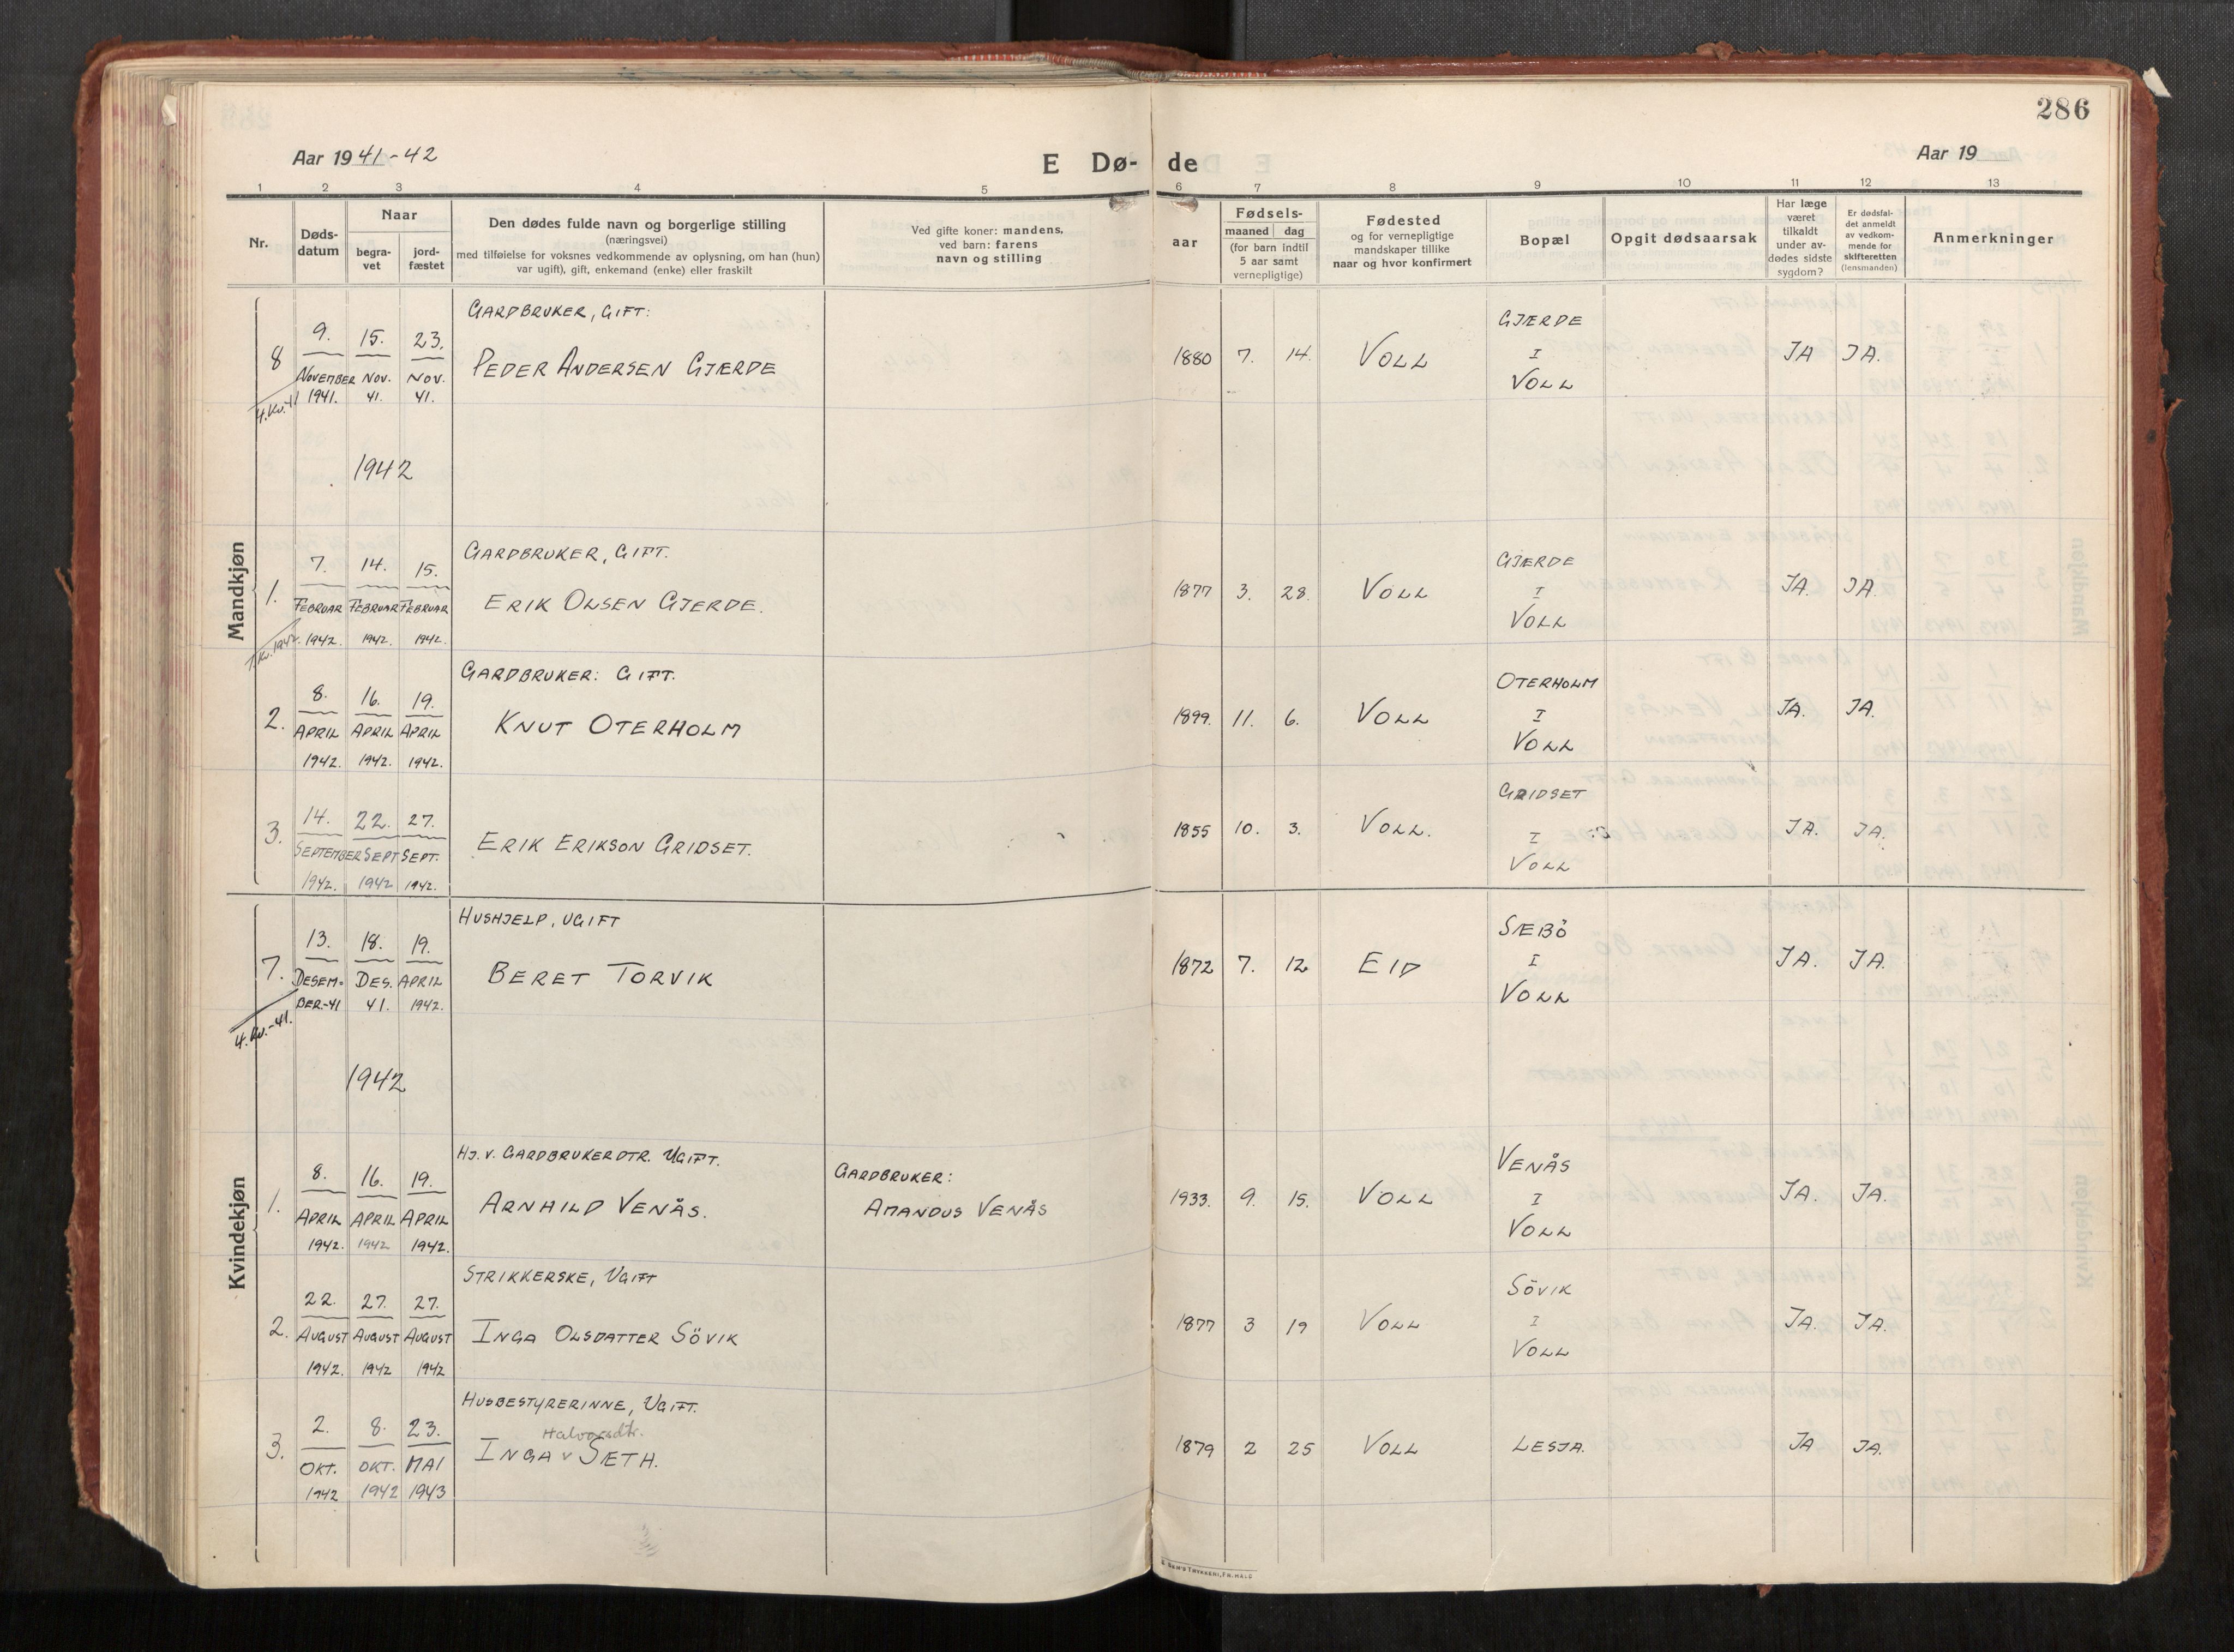 286
Aar 1941-42
E Dø- de
Aar 19
1 2 3 4 5 6 7 8 9 10 11 12 13
Nr.
Døds-
datum
Naar
begra-
vet
jord-
fæstet
Den dødes fulde navn og borgerlige stilling
(næringsvei)
med tilføielse for voksnes vedkommende av oplysning, om han (hun)
var ugift), gift, enkemand (enke) eller fraskilt
Ved gifte koner: mandens,
ved barn: farens
navn og stilling
Fødsels-
aar
maaned dag
(for barn indtil
5 aar samt
vernepligtige)
Fødested
og for vernepligtige
mandskaper tillike
naar og hvor konfirmert
Bopæl
Opgit dødsaarsak
Har læge
været
tilkaldt
under av-
dødes sidste
sygdom?
Er dødsfal-
det anmeldt
av vedkom-
mende for
skifteretten
(lensmanden)
Anmerkninger
Mandkjøn
GARDBRUKER, GIFT:
GJÆRDE
8 9. 15. 23. PEDER ANDERSEN GJÆRDE 1880 7. 14. VOLL I JA JA.
NOVEMBER NOV. NOV. VOLL
4. Kv. 41 1941. 41. 41.
1942
GARDBRUKER, GIFT.
GJÆRDE
1. 7. 14. 15. ERIK OLSEN GJERDE. 1877 3. 28. VOLL I JA. JA.
FEBRUAR FEBRUAR FEBRUAR VOLL
1. Kv. 1942. 1942. 1942. 1942.
GARDBRUKER: GIFT.
OTERHOLM
2. 8. 16. 19. KNUT OTERHOLM 1899. 11. 6. VOLL I JA. JA.
APRIL APRIL APRIL VOLL
1942. 1942. 1942.
GRIDSET
3. 14. 22. 27. ERIK ERIKSON GRIDSET. 1855 10. 3. VOLL. I JA. JA.
SEPTEMBER SEPT SEPT. VOLL
1942. 1942 1942.
Kvindekjøn
HUSHJELP, UGIFT
SÆBÖ
7. 13. 18. 19. BERET TORVIK 1872 7. 12 EID I JA. JA.
DESEM- DES. APRIL VOLL
BER-41 41. 1942.
4. Kv.-41.
1942
HJ. V. GARDBRUKERDTR. UGIFT. GARDBRUKER:
VENÅS
1. 8. 16. 19. ARNHILD VENÅS. AMANDUS VENÅS 1933. 9. 15. VOLL I JA. JA.
APRIL APRIL APRIL VOLL
1942. 1942 1942.
STRIKKERSKE, UGIFT
SÖVIK
2. 22. 27. 27. INGA OLSDATTER SÖVIK 1877 3 19 VOLL I JA. JA.
AUGUST AUGUST AUGUST VOLL
1942. 1942 1942
HUSBESTYRERINNE, UGIFT.
Halvorsdtr.
3. 2. 8. 23. INGA v SÆTH. 1879 2 25 VOLL LESJA. JA JA.
OKT. OKT. MAI
1942 1942 1943